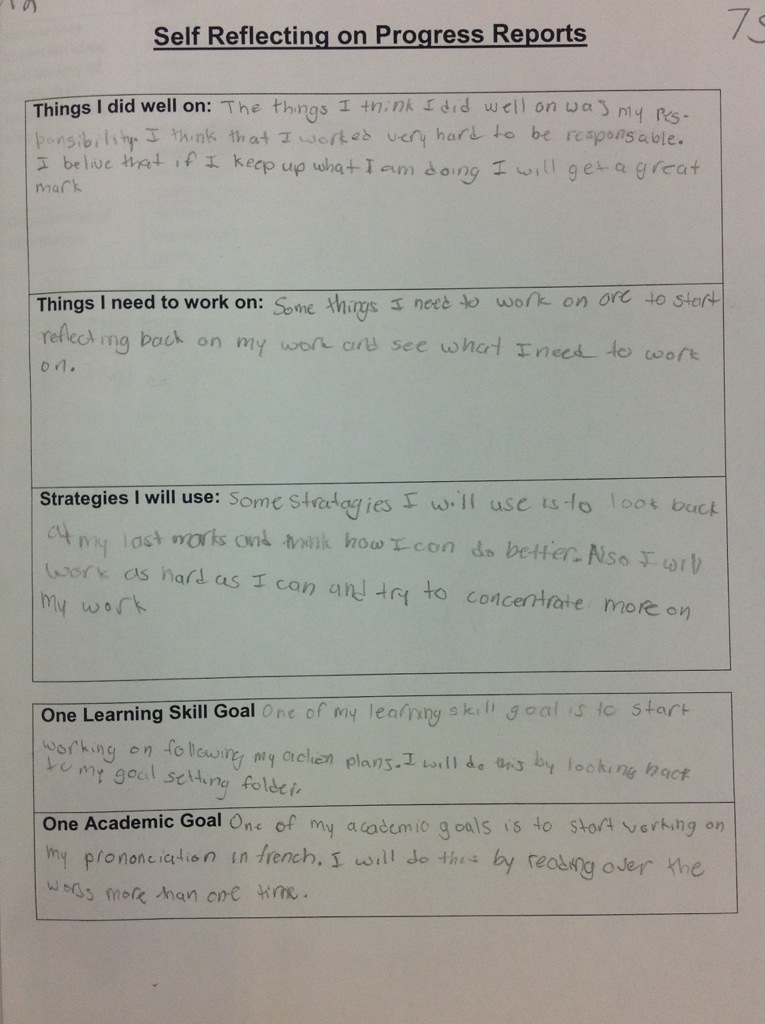 Self Reflecting on Progress Reports
Things I did well on: The things I think I did well on was my res-
ponsibility. I think that I worked very hard to be responsable.
I belive that if I keep up what I am doing I will get a great
mark
Things I need to work on: Some things I need to work on are to start
reflecting back on my work and see what I need to work
on.
Strategies I will use: Some stratagies I will use is to look back
at my last marks and think how I can do better. Also I will
work as hard as I can and try to concentrate more on
My work
One Learning Skill Goal One of my learning skill goal is to start
working on following my action plans. I will do this by looking back
to my goal setting folder.
One Academic Goal One of my academic goals is to start working on
my prononciation in french. I will do this by reading over the
words more than one time.